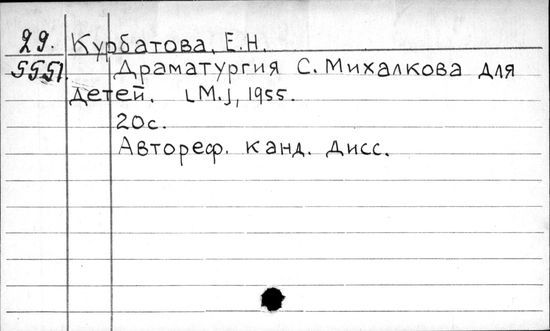 29. Курбатова, Е.Н.
5551. Драматургия С. Михалкова для
детей. [М.], 1955.
20с.
Автореф. канд. дисс.